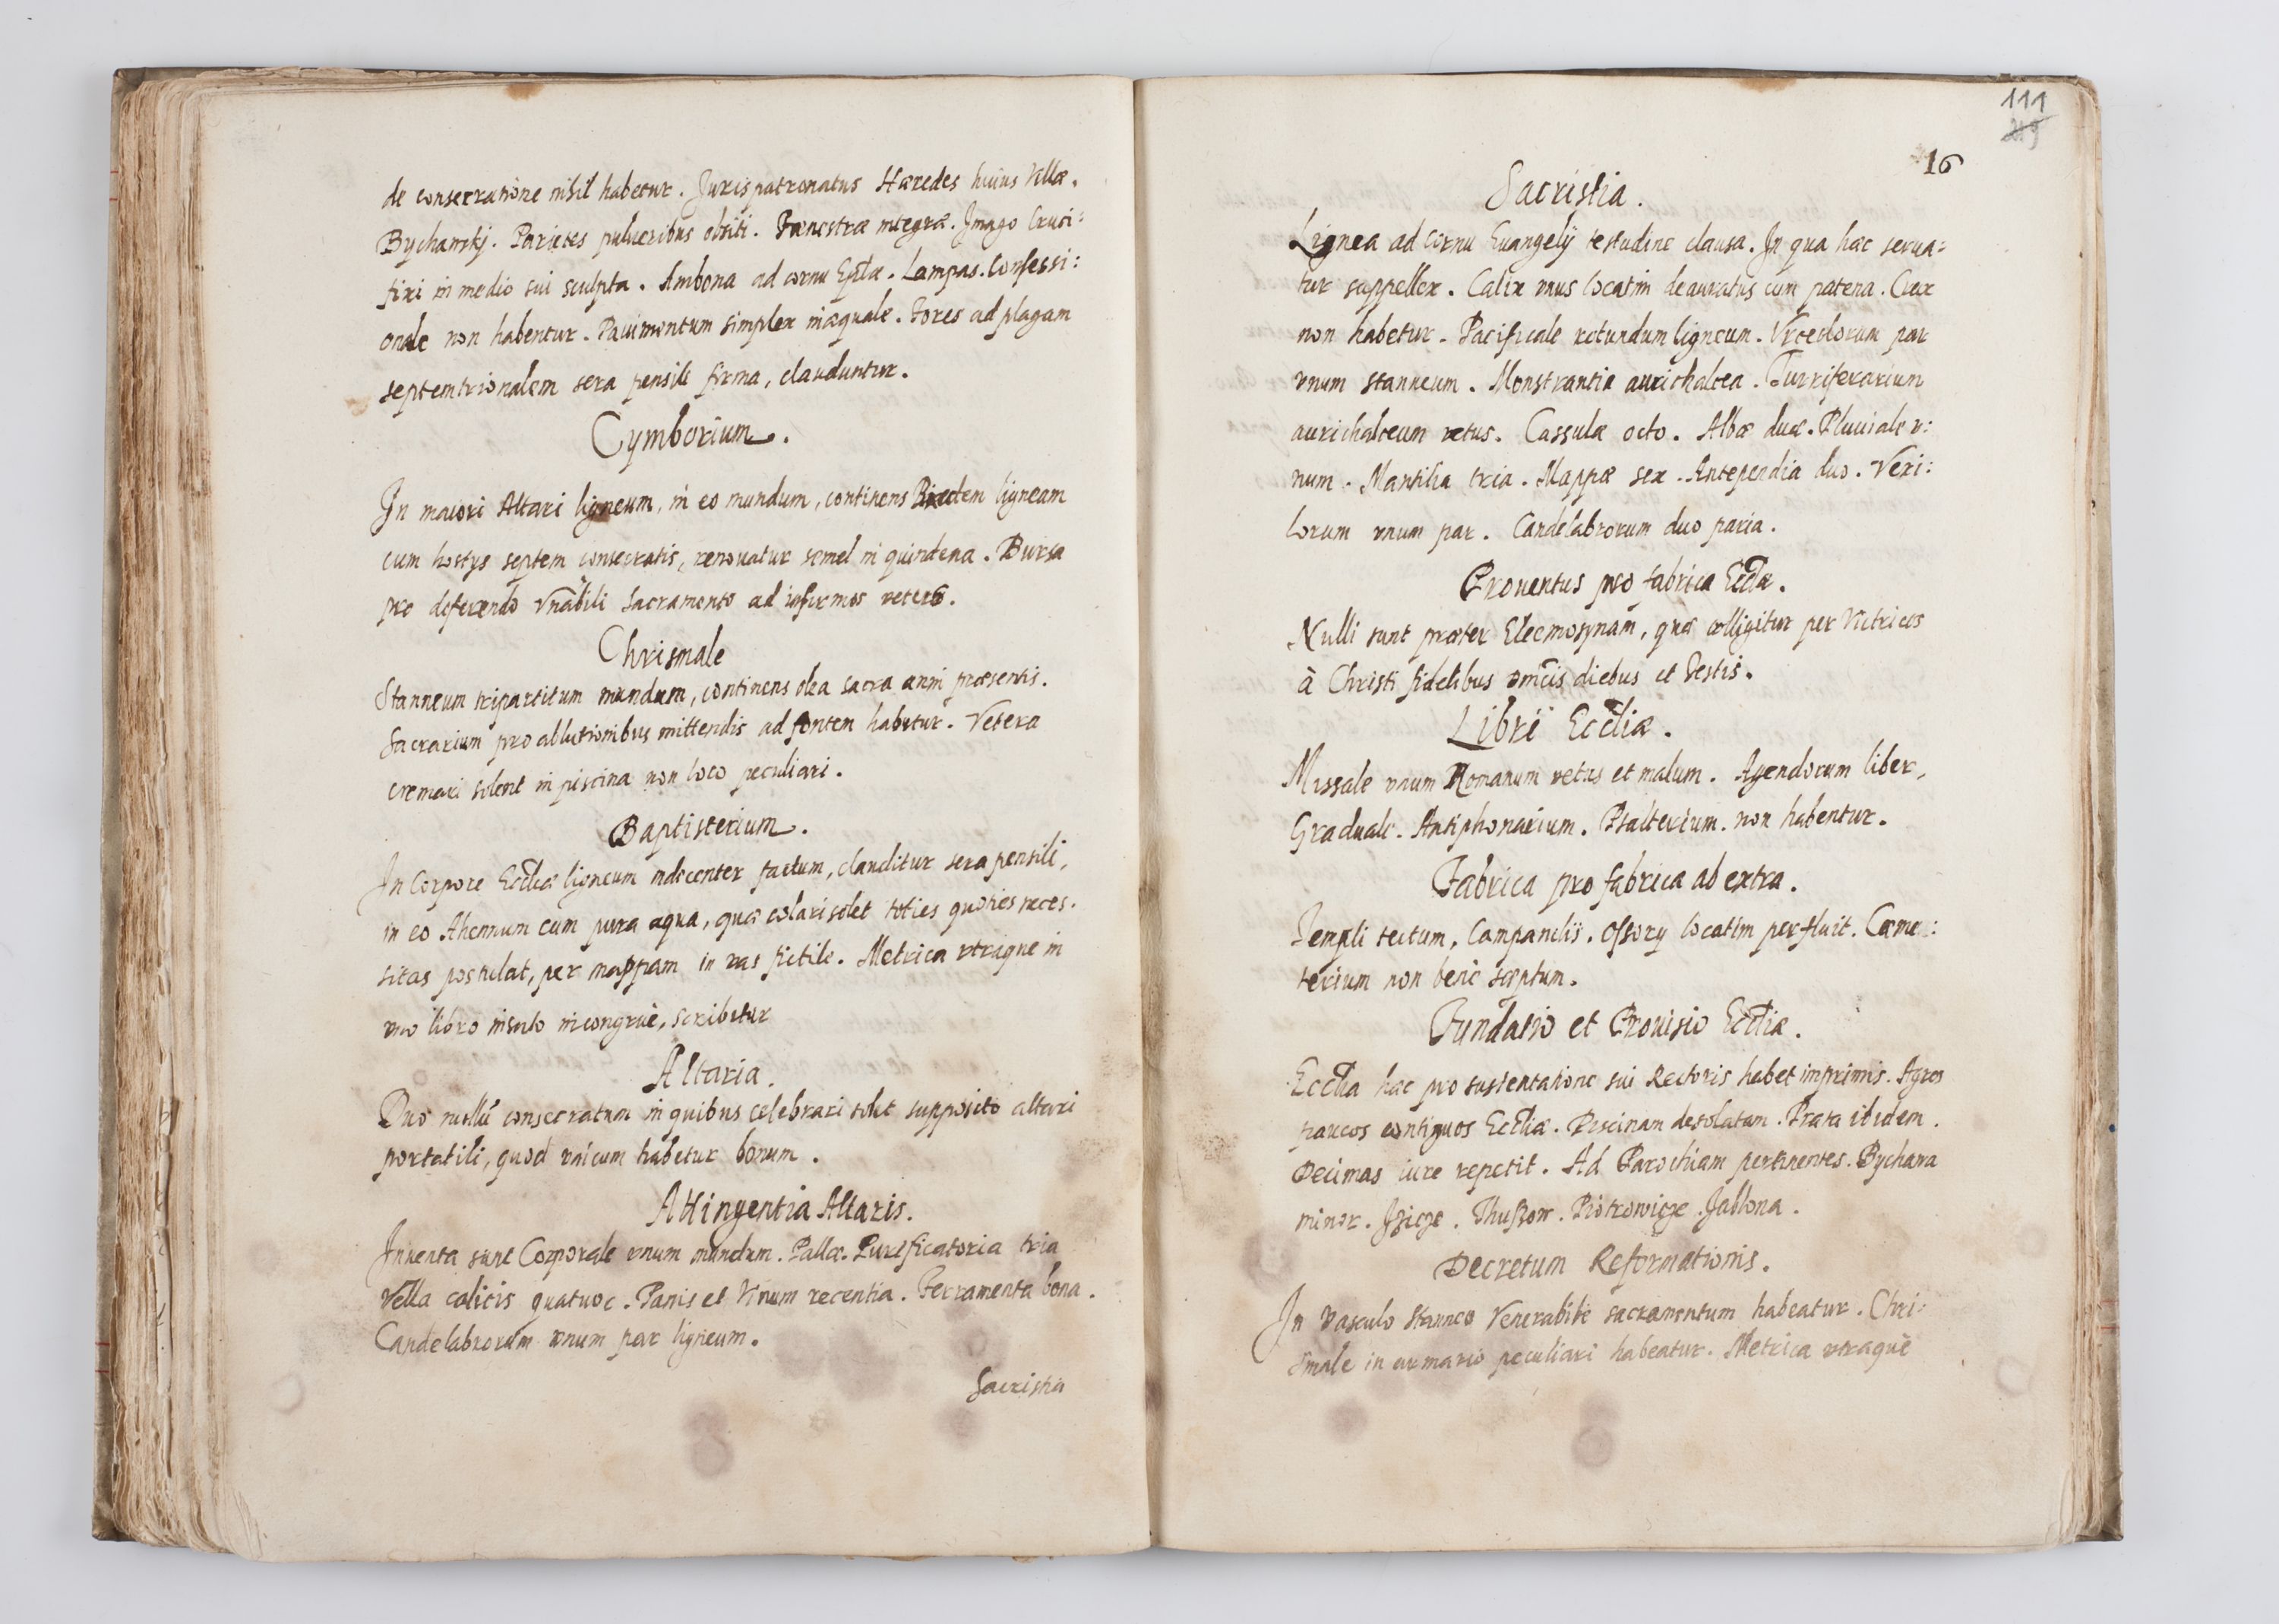 de consecratione nihil habetur. Jurispatronatus Hæredes huius Villæ.
Bychawskj. Parietes pulueribus obsiti. Fænestræ integræ. Jmago Cruci:
fixi in medio sui sculpta. Ambona ad cornu Eplæ. Lampas. Confessi:
onale non habentur. Pauimentum simplex inæquale. Fores ad plagam
septemtrionalem sera pensili firma, clauduntur.
Cymborium.
Jn maiori Altari ligneum, in eo mundum, continens Pixidem ligneam
cum hostys septem consecratis, renouatur semel in quindena. Bursa
pro deferendo Vnãbili Sacramento ad infirmos vetus.
Chrismale
Stanneum tripartitum mundum, continens olea sacra anni præsentis.
Sacrarium pro ablutionibus mittendis ad fontem habetur. Vetera
cremari solent in piscina non loco peculiari.
Baptisterium.
Jn Corpore Ecclíæ ligneum indecenter factum, clauditur sera pensili,
in eo Ahennum cum pura aqua, quæ colari solet toties quoties neces.
sitas postulat, per mappam in vas fictile. Metrica vtraque in
vno libro insuto incongruè, scribitur
Altaria.
Duo nullũ consecratum in quibus celebrari solet supposito altari
portatili, quod vnicum habetur bonum.
Attingentia Altaris.
Jnuenta sunt Corporale vnum mundum. Pallæ. Purificatoria tria
Vella calicis quatuor. Panis et Vinum recentia. Ferramenta bona.
Candelabrorum vnum par ligneum.
Sacristia
111
219
16
Sacristia.
Lignea ad cornu Euangelÿ testudine clausa. Jn qua hæc serua:
tur suppellex. Calix vnus locatim deauratus cum patena. Crux
non habetur. Pacificale rotundum ligneum. Vrceolorum par
vnum stanneum. Monstrantia aurichalcea. Turriferarium
aurichalceum vetus. Cassulæ octo. Albæ duæ. Pluuiale v:
num. Mantilia tria. Mappæ sex. Antependia duo. Vexi:
lorum vnum par. Candelabrorum duo paria.
Prouentus pro fabrica Ecclæ.
Nulli sunt præter Eleemosynam, quæ colligitur per Vitricos
à Christi fidelibus omcis diebus et Festis.
Libri Eccliæ.
Missale vnum Romanum vetus et malum. Agendorum liber,
Graduale. Antiphonarium. Psalterium. non habentur.
Fabrica pro fabrica ab extra.
Templi tectum, Campanilis. Ossory locatim perfluit. Cæme:
terium non benè sæptum.
Fundatio et Prouisio Eccliæ.
Ecclia hæc pro sustentatione sui Rectoris habet imprimis. Agros
paucos contiguos Eccliæ. Piscinam desolatam. Prata ibidem.
Decimas iure repetit. Ad Parochiam pertinentes. Bychawa
minor. Jzicze. Thuszow. Piotrowicze. Jablona.
Decretum Reformationis.
Jn Vasculo Stanneo Venerabile sacramentum habeatur. Chri:
smale in armario peculiari habeatur. Metrica vtraquè